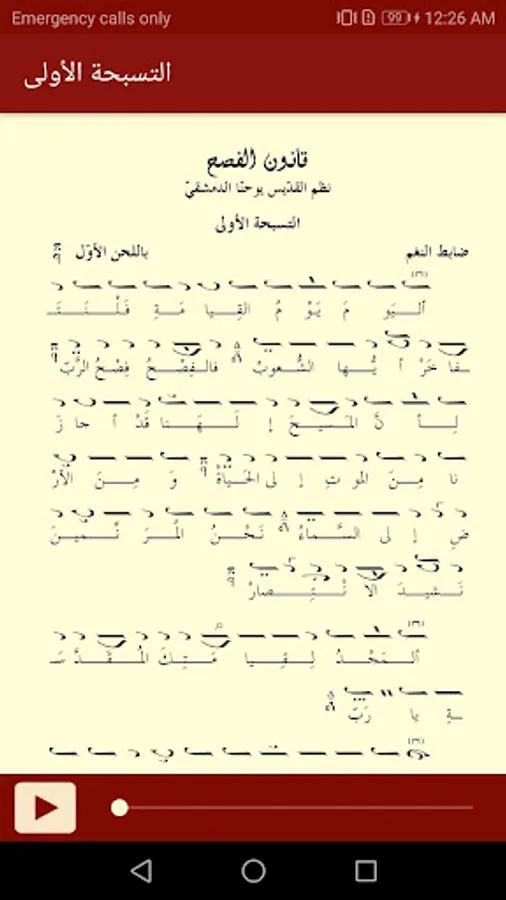 Emergency calls only 99 12:26 AM
التسبحة الأولى
قانون الفصح
نظم القدّيس يوحنّا الدمشقيّ
التسبحة الأولى
ضابط النغم باللحن الأوّل
أليَو مَ يَوْ مُ القِيا مَةِ فَلْنَتَـ
ـفا خَرْ أ يُّها الشُّعوبْ فالفِصْحُ فِصْحُ الرَّبّ
لِأ نَّ المَسيحَ إ لَهَنا قَدْ أ جازَ
نا مِنَ الموتِ إلى الحَياةْ وَ مِنَ الأرْ
ضِ إلى السَّماءْ نَحْنُ المُرَ نِّمينَ
نَشيدَ الا نْتِصارْ
ألمَجْدُ لِقِيا مَتِكَ المُقَدَّ سَـ
ـةِ يا رَبّ